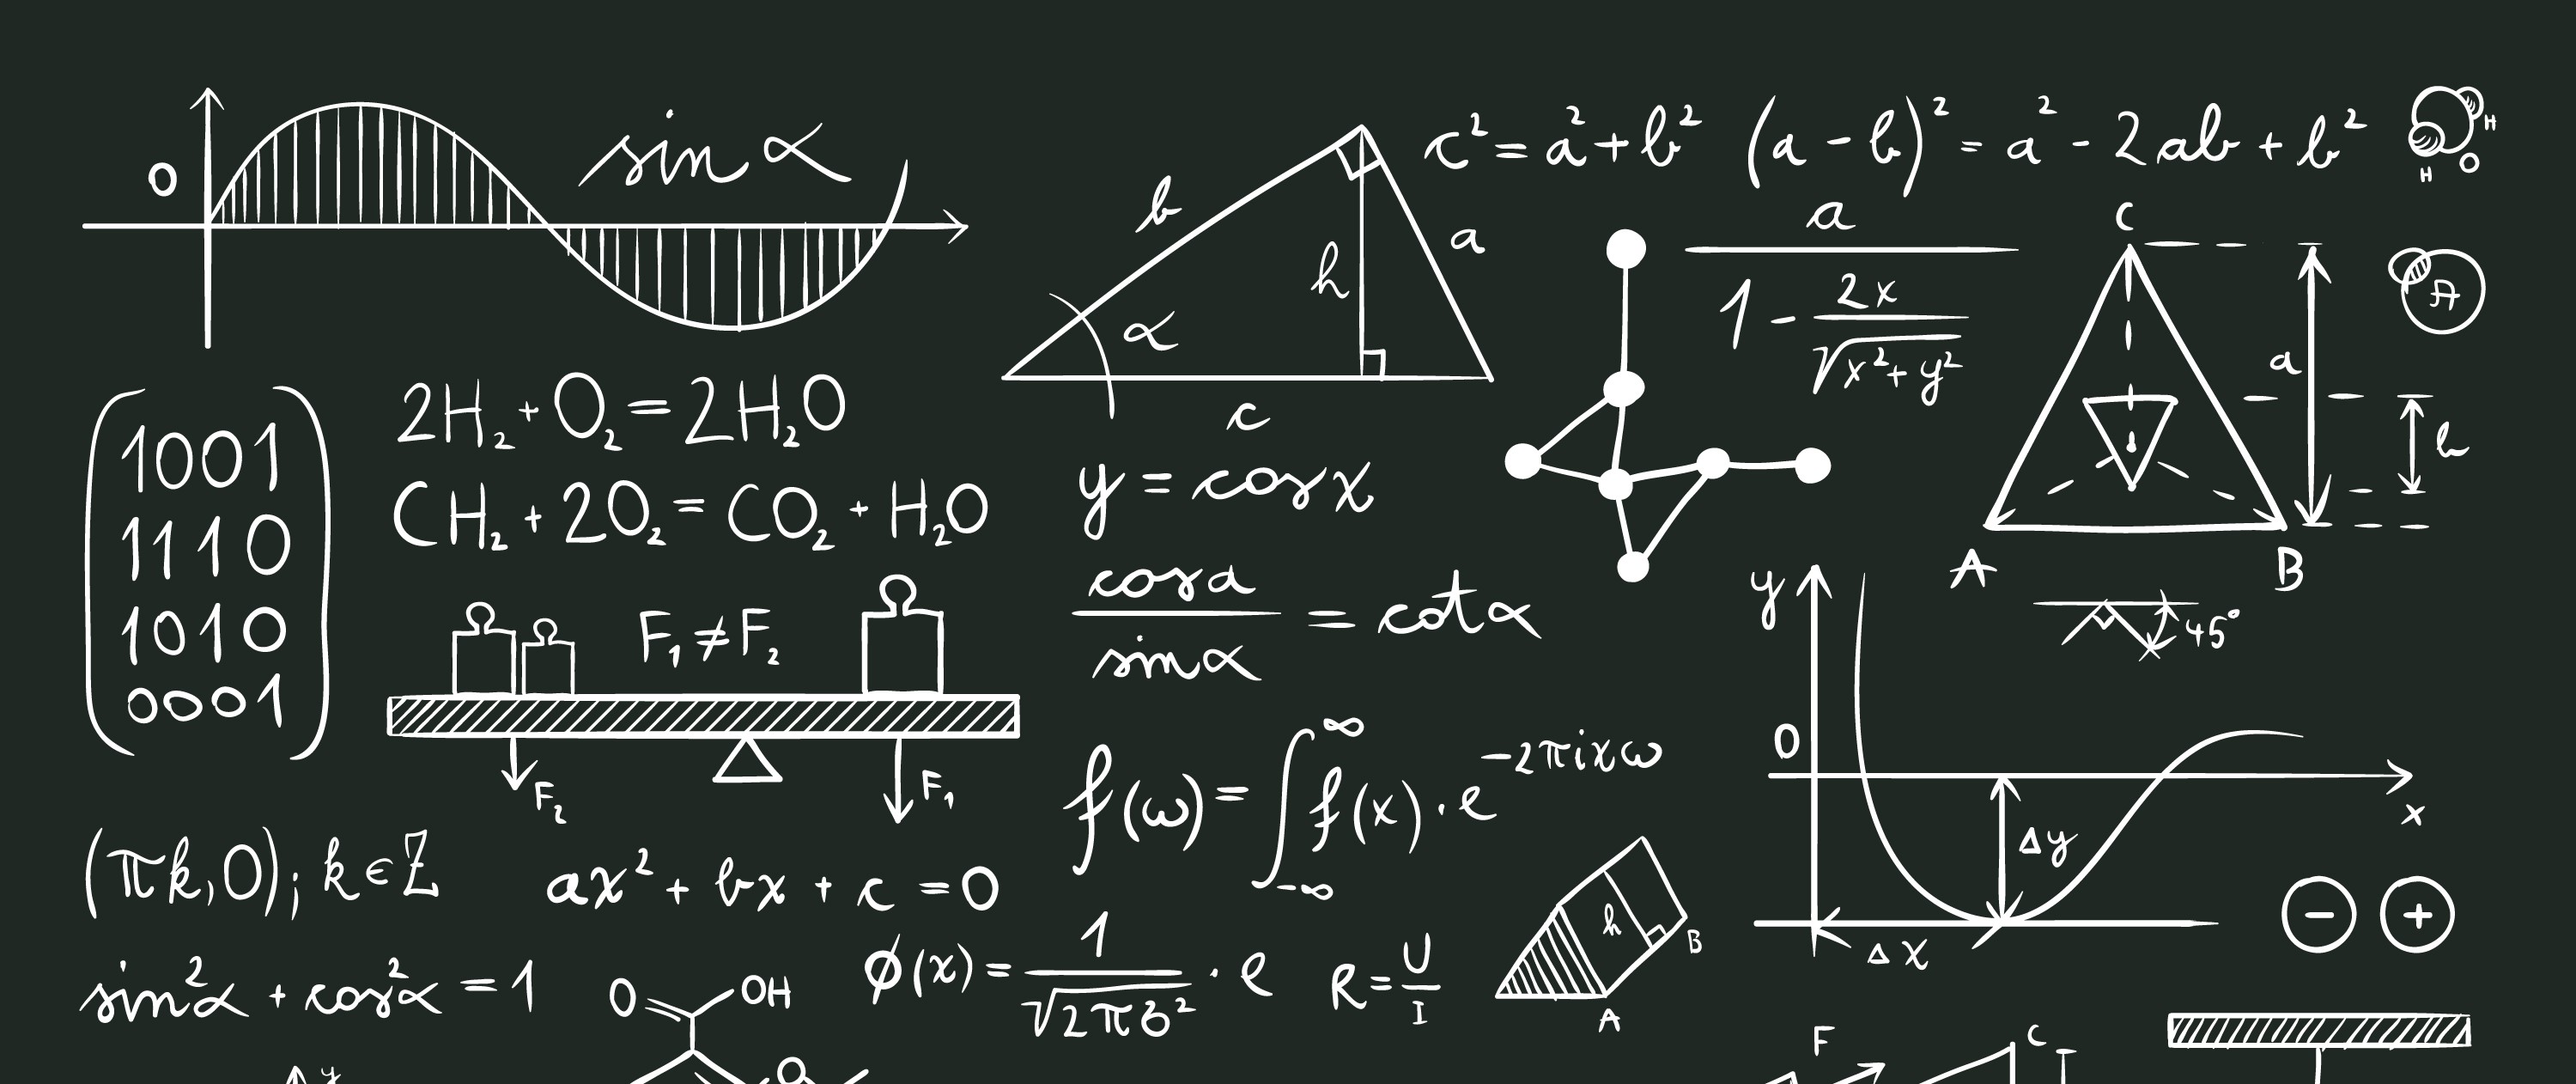 0
sin α
b
a
h
α
c
c² = a² + b²
(a - b)² = a² - 2ab + b²
H
H
O
a
1 - 2x
√x² + y²
C
a
h
A
B
A
45°
1001
1110
1010
0001
2H₂ + O₂ = 2H₂O
CH₂ + 2O₂ = CO₂ + H₂O
F₁ ≠ F₂
F₂
F₁
y = cosx
cosa
sinα
= cotα
y
0
x
Δy
Δx
f(ω) = ∫ f(x) · e^-2πixω
∞
-∞
(πk, 0); k ∈ Z
ax² + bx + c = 0
sin²α + cos²α = 1
O
OH
ϕ(x) = 1 · e
√2πб²
R = U
I
h
B
A
-
+
F
C
y
O